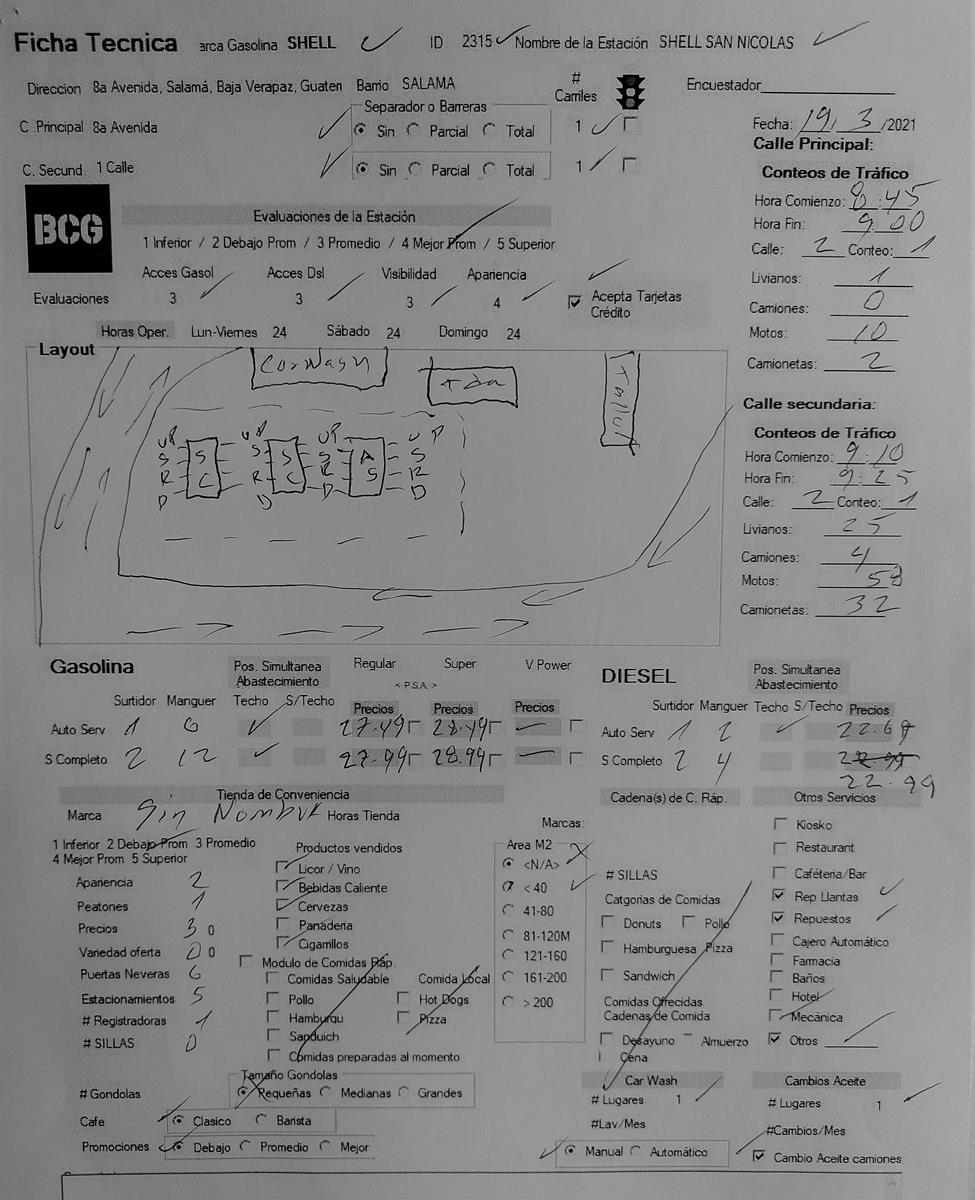 Ficha Tecnica arca Gasolina SHELL ID 2315 Nombre de la Estación SHELL SAN NICOLAS
Direccion 8a Avenida, Salamá, Baja Verapaz, Guaten Barrio SALAMA # Carriles Encuestador
Separador o Barreras
C .Principal 8a Avenida Sin Parcial Total 1 Fecha: 19/3/2021
Calle Principal:
C. Secund. 1 Calle Sin Parcial Total 1
Conteos de Tráfico
BCG
Hora Comienzo: 8:45
Evaluaciones de la Estación
Hora Fin: 9:00
1 Inferior / 2 Debajo Prom / 3 Promedio / 4 Mejor Prom / 5 Superior
Calle: 2 Conteo: 1
Acces Gasol Acces Dsl Visibilidad Apariencia
Livianos: 1
Evaluaciones 3 3 3 4 Acepta Tarjetas Crédito
Camiones: 0
Horas Oper. Lun-Viernes 24 Sábado 24 Domingo 24
Motos: 10
Camionetas: 2
Layout
CarWash
tda
Taller
Calle secundaria:
Conteos de Tráfico
Hora Comienzo: 9:10
Hora Fin: 9:25
Calle: 2 Conteo: 1
Livianos: 25
Camiones: 4
Motos: 58
Camionetas: 32
UP UP UP UP
S S S S S A S
R C R C R S R
D D D D
Gasolina Pos. Simultanea Abastecimiento Regular Super V Power DIESEL Pos. Simultanea Abastecimiento
< P.S.A. >
Surtidor Manguer Techo S/Techo Precios Precios Precios Surtidor Manguer Techo S/Techo Precios
Auto Serv 1 6 27.49 28.49 — Auto Serv 1 2 22.69
S Completo 2 12 27.99 28.99 — S Completo 2 4 22.99
22.99
Tienda de Conveniencia Cadena(s) de C. Ráp. Otros Servicios
Marca Sin Nombre Horas Tienda
Marcas:
1 Inferior 2 Debajo Prom 3 Promedio
4 Mejor Prom 5 Superior
Apariencia 2
Peatones 1
Precios 3 0
Variedad oferta 0 0
Puertas Neveras 6
Estacionamientos 5
# Registradoras 1
# SILLAS 0
Productos vendidos
Licor / Vino
Bebidas Caliente
Cervezas
Panaderia
Cigarrillos
Modulo de Comidas Ráp.
Comidas Saludable Comida Local
Pollo Hot Dogs
Hamburqu Pizza
Sanduich
Comidas preparadas al momento
Area M2
<N/A>
< 40
41-80
81-120M
121-160
161-200
> 200
# SILLAS
Catgorias de Comidas
Donuts Pollo
Hamburguesa Pizza
Sandwich
Comidas Ofrecidas
Cadenas de Comida
Desayuno Almuerzo
Cena
Kiosko
Restaurant
Caféteria/Bar
Rep Llantas
Repuestos
Cajero Automático
Farmacia
Baños
Hotel
Mecánica
Otros
Tamaño Gondolas
# Gondolas Requeñas Medianas Grandes
Cafe Clasico Barista
Promociones Debajo Promedio Mejor
Car Wash
# Lugares 1
#Lav/Mes
Manual Automático
Cambios Aceite
# Lugares 1
#Cambios/Mes
Cambio Aceite camiones